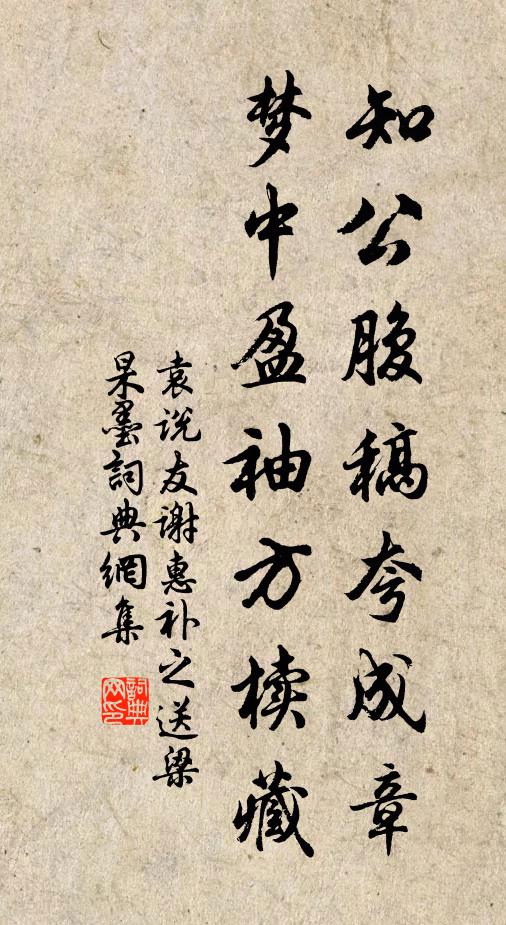 知公腹稿夸成章
梦中盈袖方椟藏
袁说友谢惠补之送梁
杲墨詞典網集
詞典网印